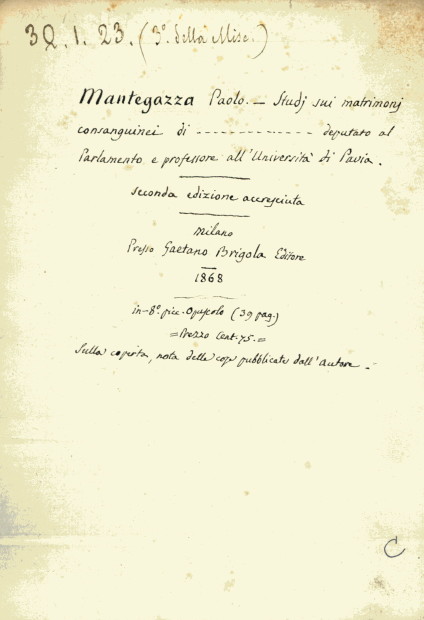 32. 1. 23. (3º della Misc.)
Mantegazza Paolo. — Studj sui matrimonj
consanguinei di - - - - - - - - - - - - - - deputato al
Parlamento e professore all'Università di Pavia.
Seconda edizione accresciuta
Milano
Presso Gaetano Brigola Editore
1868
in-8º picc. Opuscolo (39 pag.)
= Prezzo Cent. 75. =
Sulla coperta, nota delle cose pubblicate dall'autore -
C